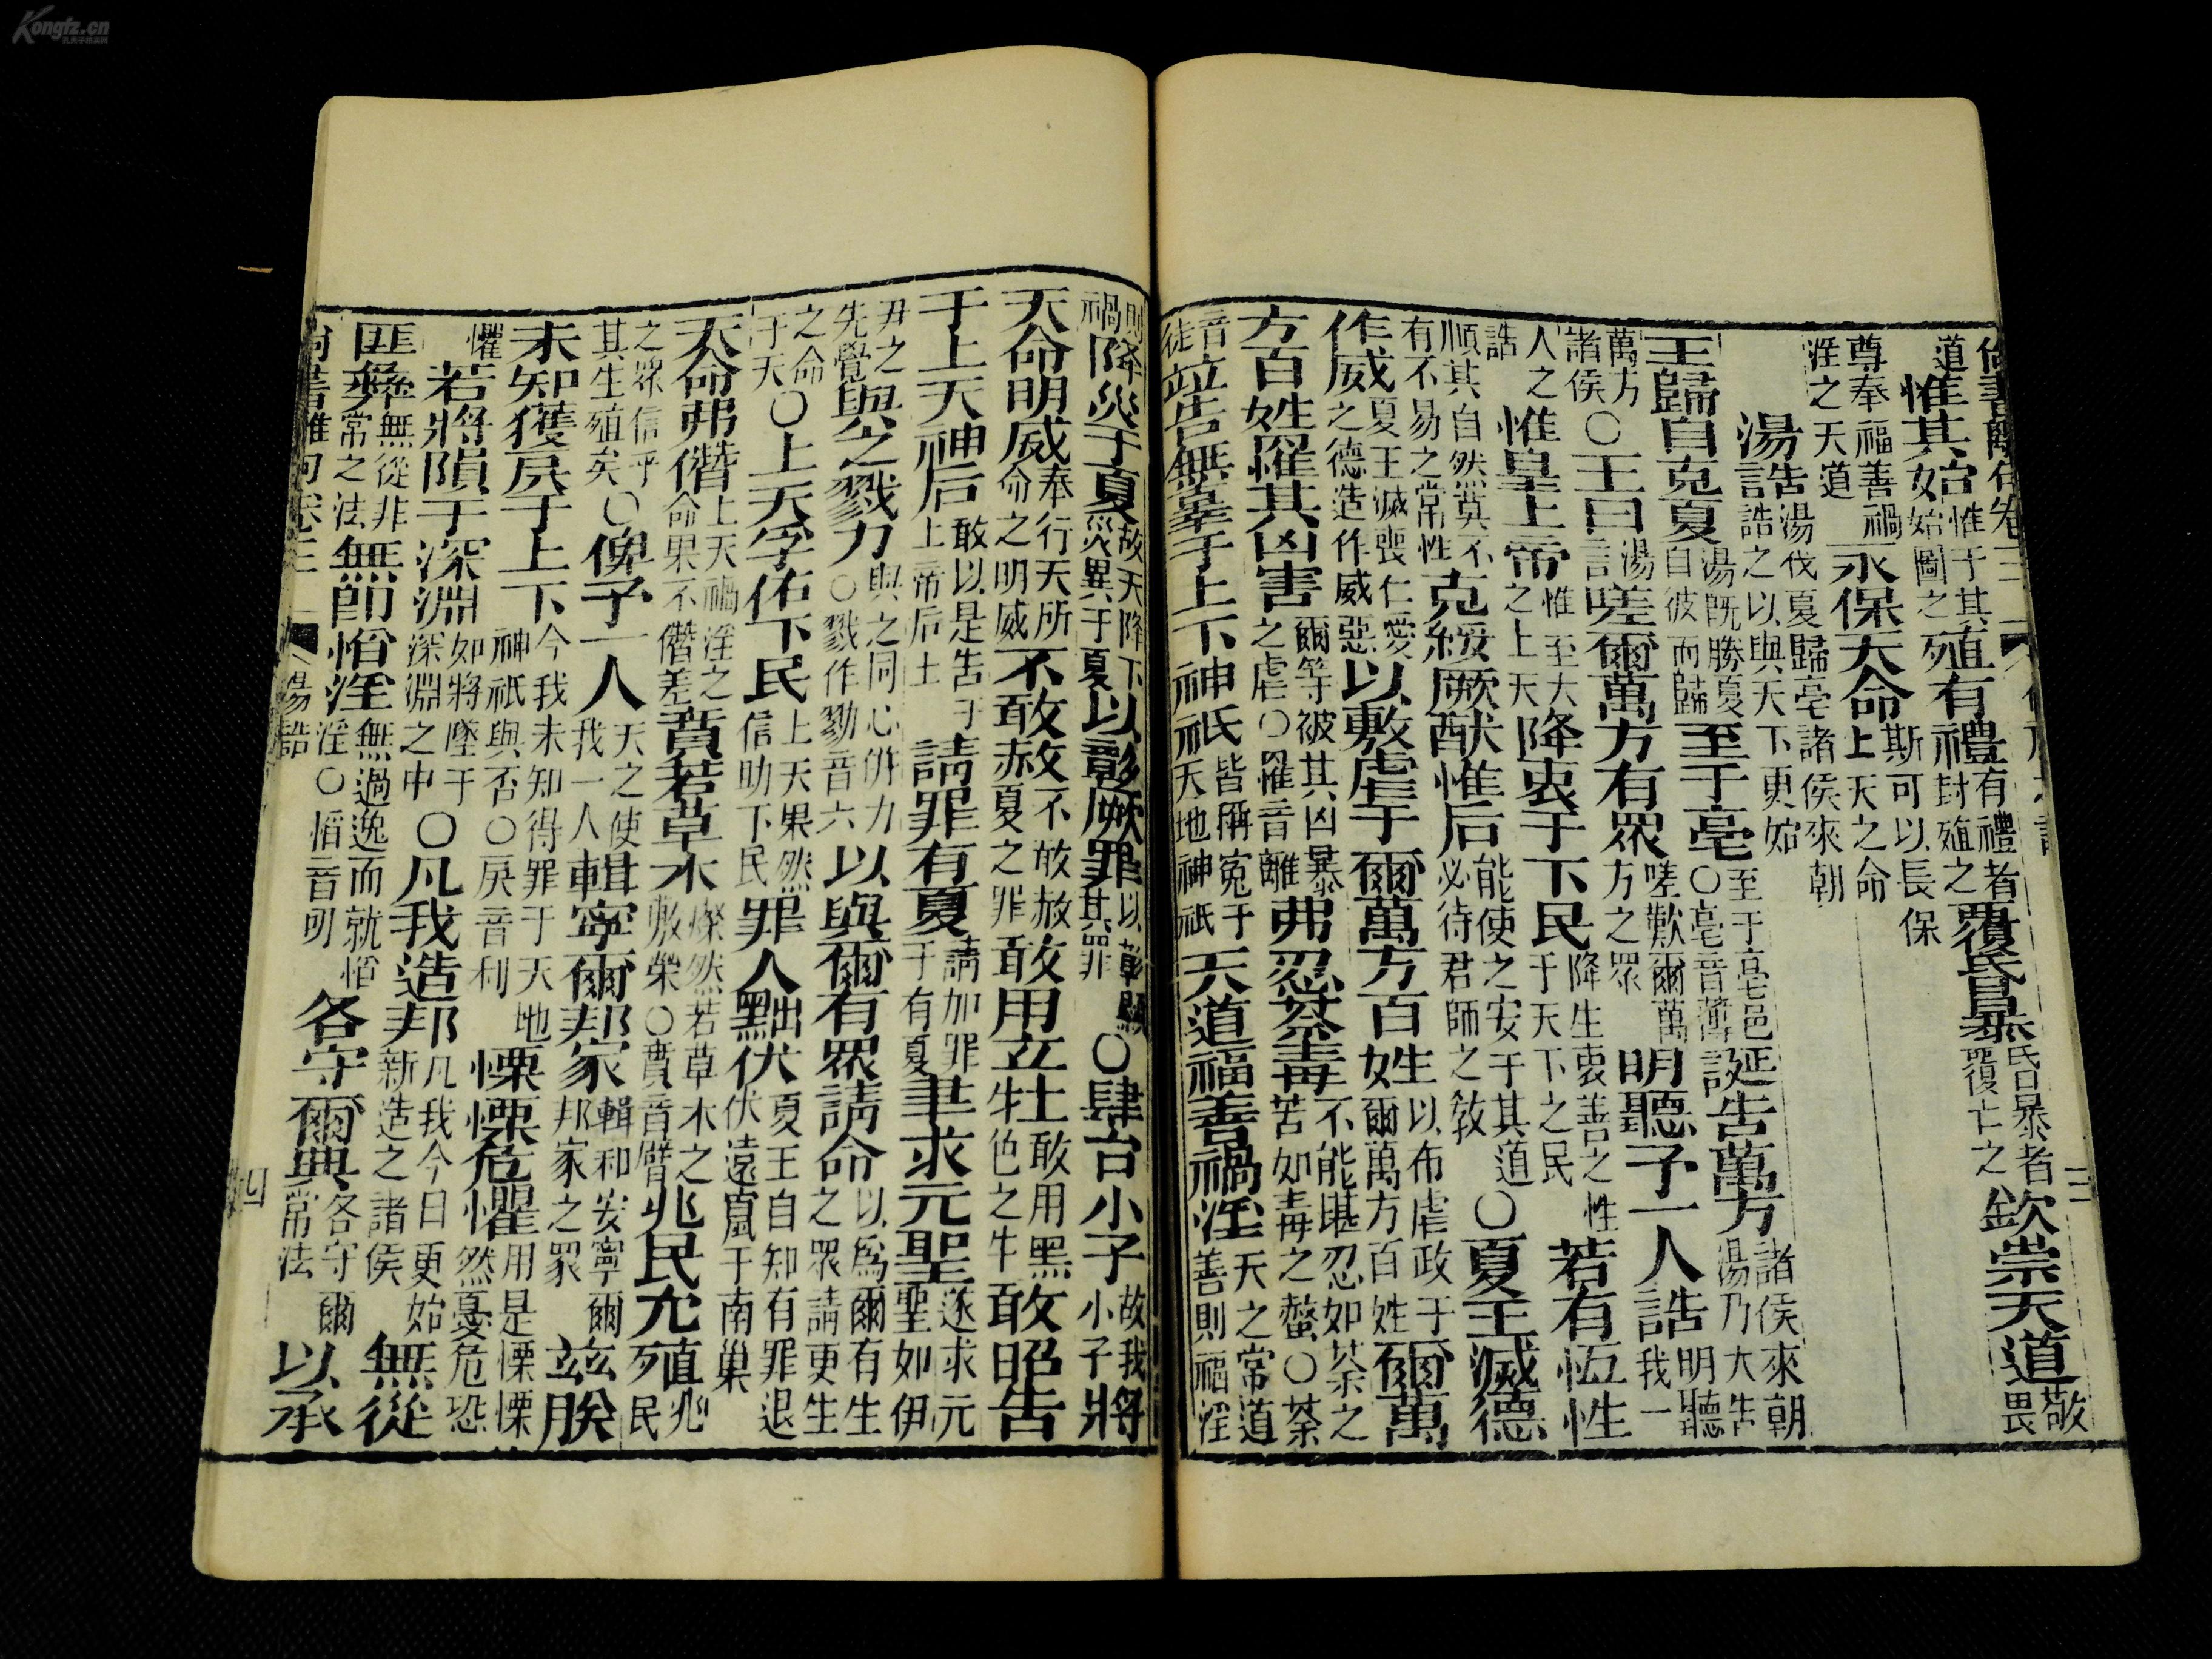 尚書離句卷三 三
道惟其始惟于其始圖之殖有禮有禮者封殖之覆昏暴昏暴者覆亡之欽崇天道敬畏
尊奉福善禍淫之天道永保天命斯可以長保上天之命
湯誥湯伐夏歸亳諸侯來朝誥之以與天下更始
王歸自克夏湯旣勝夏自彼而歸至于亳至于亳邑○亳音薄誕告萬方諸侯來朝湯乃大告
萬方諸侯○王曰湯言嗟爾萬方有眾嗟歎爾萬方之眾明聽予一人誥明聽我一
人之誥惟皇上帝惟至大之上天降衷于下民降生衷善之性于天下之民若有恆性
順其自然莫不有不易之常性克綏厥猷惟后能使之安于其道必待君師之敎○夏王滅德
作威夏王滅喪仁愛之德造作威惡以敷虐于爾萬方百姓以布虐政于爾萬方百姓爾萬
方百姓罹其凶害爾等被其凶暴之虐○罹音離弗忍荼毒不能堪忍如荼之苦如毒之螫○荼
音徒並告無辜于上下神祇皆稱寃于天地神祇天道福善禍淫天之常道善則福淫
則禍降災于夏故天降下災異于夏以彰厥罪以彰顯其罪○肆台小子故我小子將
天命明威奉行天所命之明威不敢赦不敢赦夏之罪敢用玄牡敢用黑色之牛敢昭告
于上天神后敢以是告于上帝后土請罪有夏請加罪于有夏聿求元聖遂求元聖如伊
尹之先覺與之戮力與之同心併力○戮作勠音六以與爾有眾請命以爲爾有生之眾請更生
之命于天○上天孚佑下民上天果然信助下民罪人黜伏夏王自知有罪退伏遠竄于南巢
天命弗僭上天禍淫之命果不僭差賁若草木燦然若草木之敷榮○賁音臂兆民允殖兆民
之眾信乎其生殖矣○俾予一人天之使我一人輯寧爾邦家輯和安寧爾邦家之眾玆朕
未知獲戾于上下今我未知得罪于天地神祇與否○戾音利慄慄危懼用是慄慄然憂危恐
懼若將隕于深淵如將墜于深淵之中○凡我造邦凡我今日更始新造之諸侯無從
匪彝無從非常之法無卽慆淫無過逸而就慆淫○慆音叨各守爾典各守爾常法以承
尚書離句卷三 湯誥 四